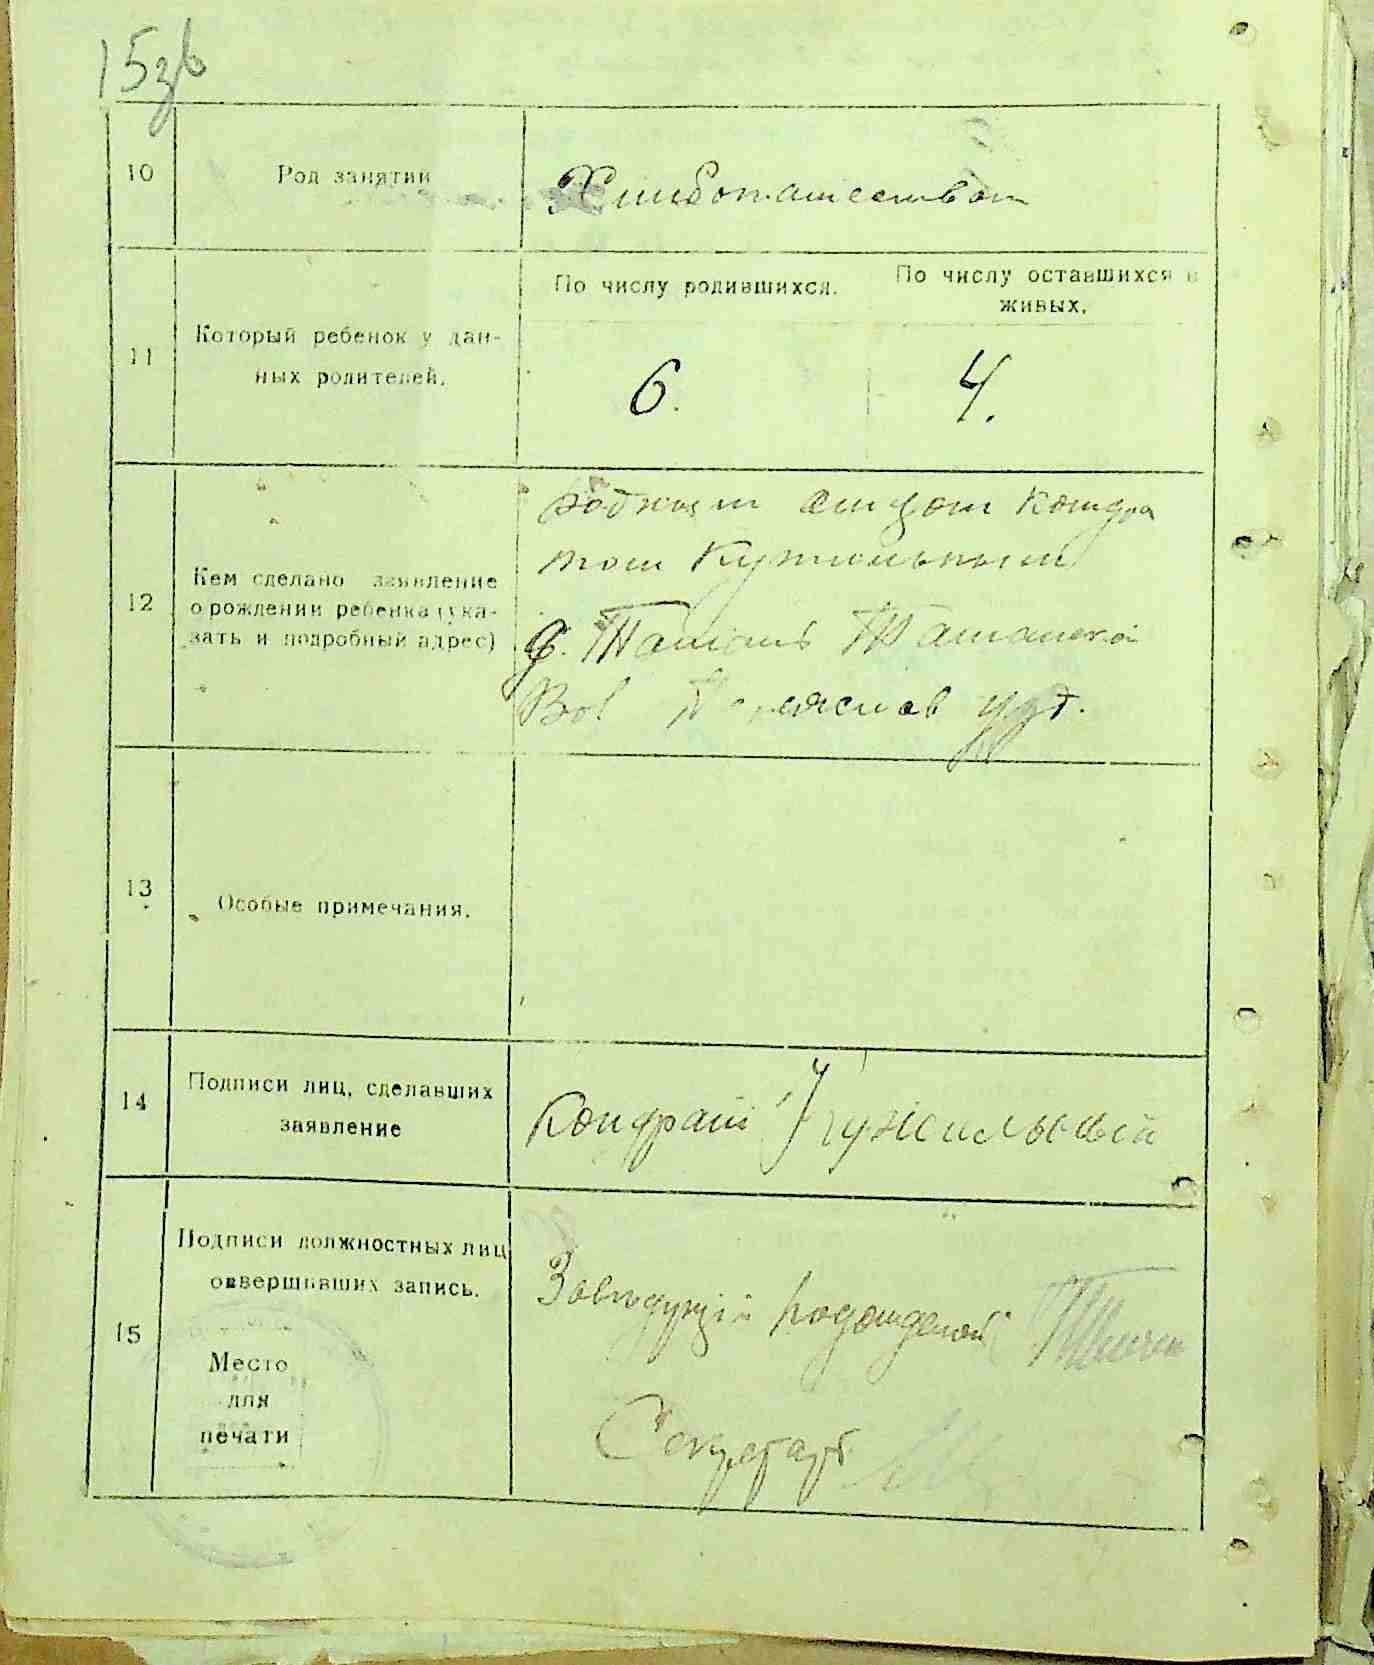 15зв
10
Род занятий
Хлибопашеством
11
Который ребенок у дан-
ных родителей.
По числу родившихся.
По числу оставшихся в
живых.
6.
4.
12
Кем сделано заявление
о рождении ребенка (ука-
зать и подробный адрес)
отцом Кондра
том Кужильным
д. Ташань Ташанской
Вол Переяслав уез.
13
Особые примечания.
14
Подписи лиц, сделавших
заявление
Кондрат Кужильный
15
Подписи должностных лиц
совершивших запись.
Место
для
печати
Заведующий
Секретарь